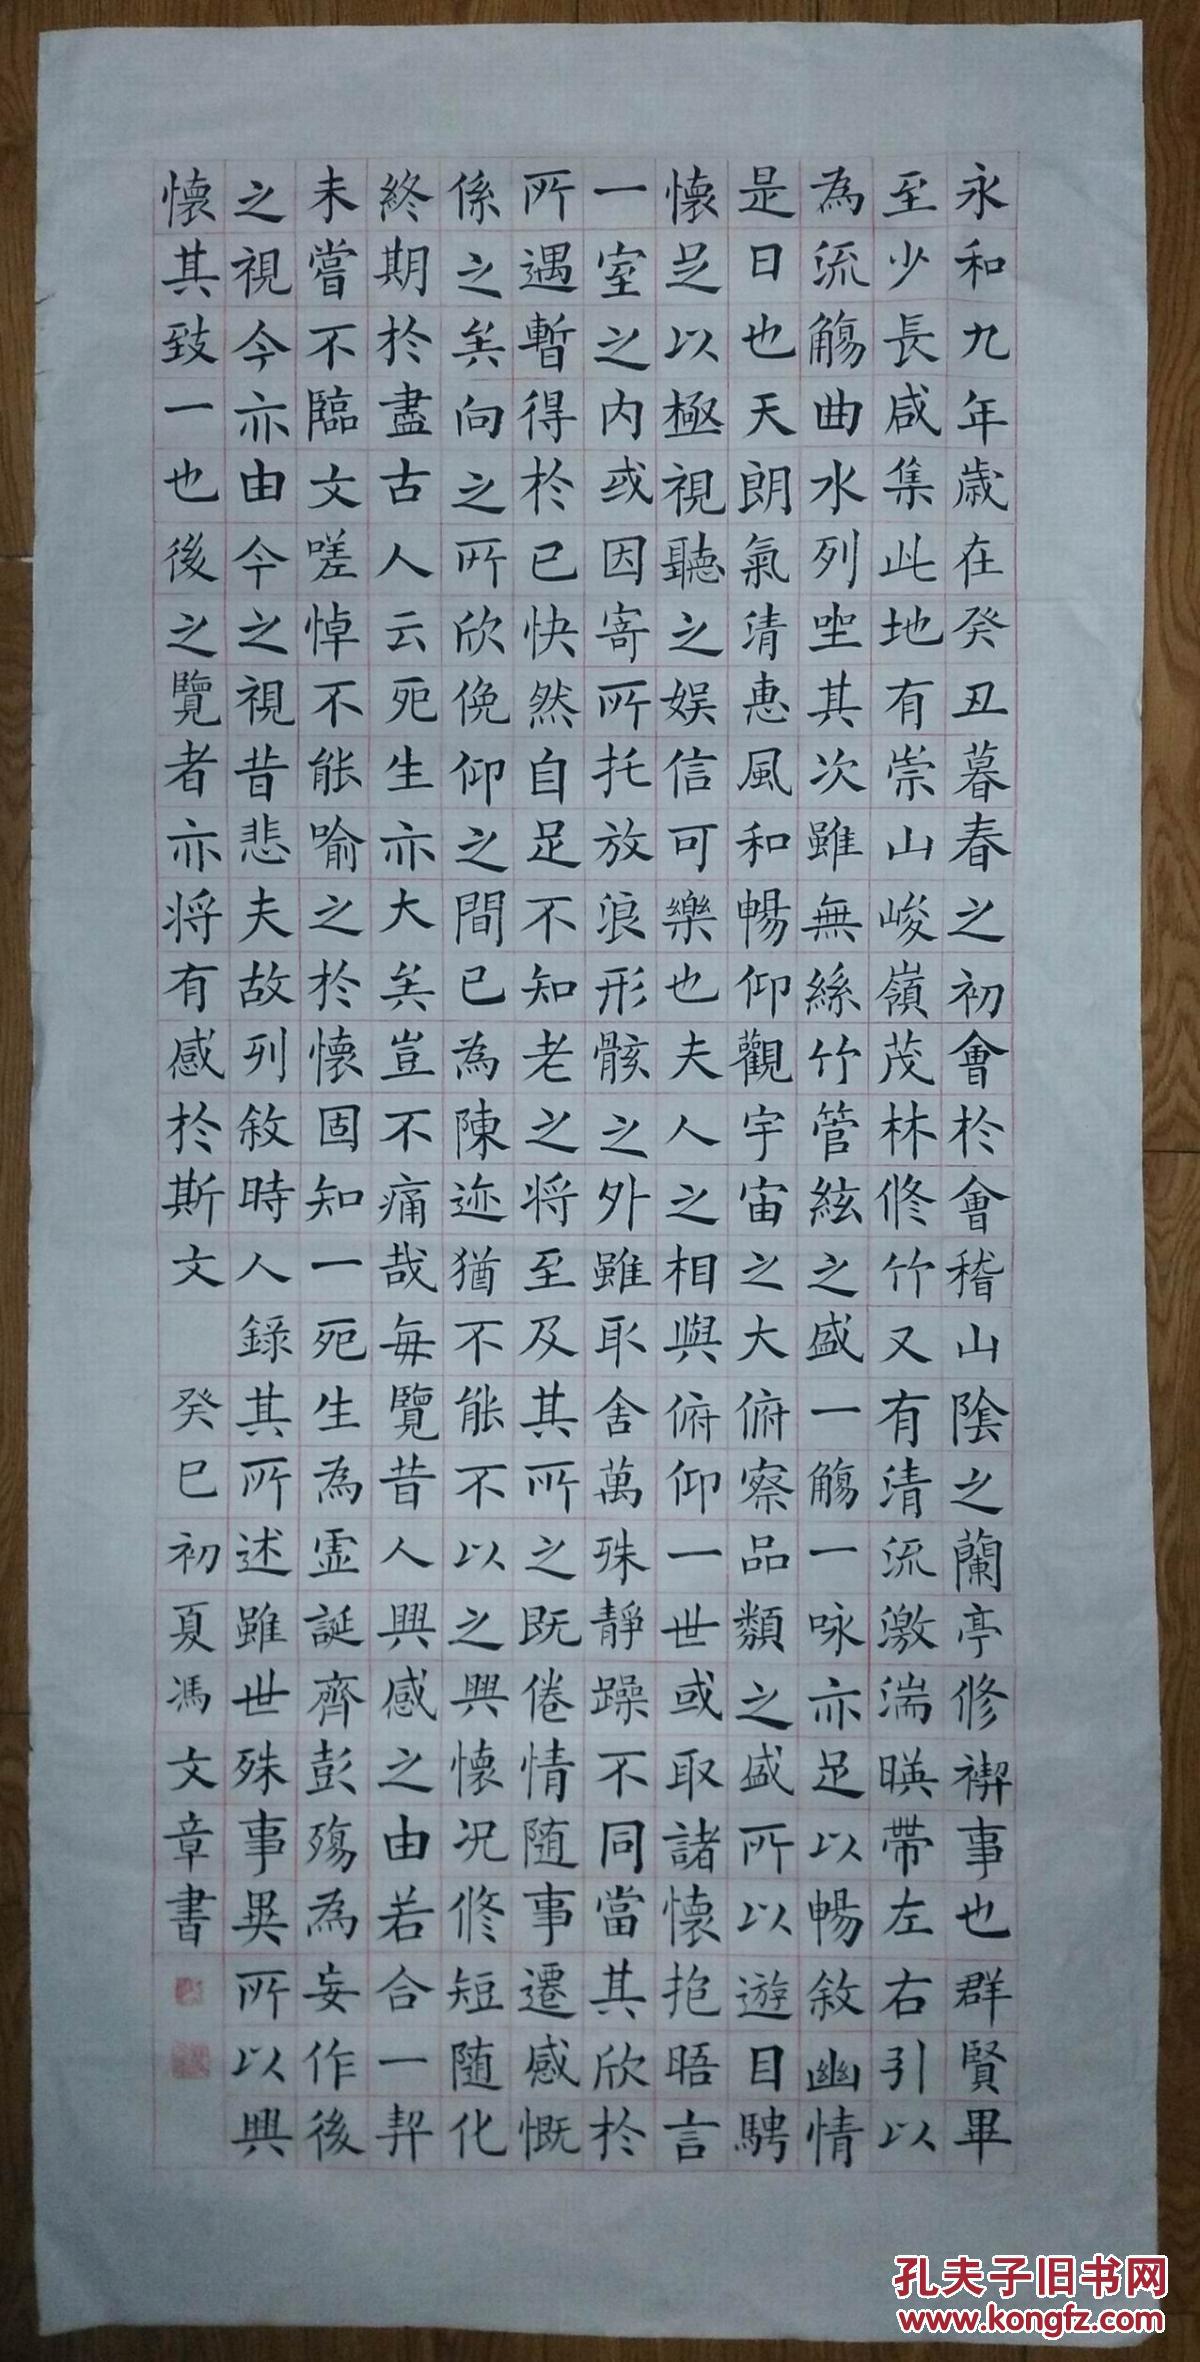 永和九年歲在癸丑暮春之初會於會稽山陰之蘭亭修禊事也群賢畢
至少長咸集此地有崇山峻嶺茂林修竹又有清流激湍暎帶左右引以
為流觴曲水列坐其次雖無絲竹管絃之盛一觴一咏亦足以暢敘幽情
是日也天朗氣清惠風和暢仰觀宇宙之大俯察品類之盛所以遊目騁
懷足以極視聽之娛信可樂也夫人之相與俯仰一世或取諸懷抱晤言
一室之内或因寄所托放浪形骸之外雖取舍萬殊靜躁不同當其欣於
所遇暫得於己快然自足不知老之将至及其所之既倦情随事遷感慨
係之矣向之所欣俛仰之間已為陳迹猶不能不以之興懷况修短随化
終期於盡古人云死生亦大矣豈不痛哉每覽昔人興感之由若合一契
未嘗不臨文嗟悼不能喻之於懷固知一死生為虛誕齊彭殤為妄作後
之視今亦由今之視昔悲夫故列敘時人錄其所述雖世殊事異所以興
懷其致一也後之覽者亦将有感於斯文 癸巳初夏馮文章書
孔夫子旧书网
www.kongfz.com